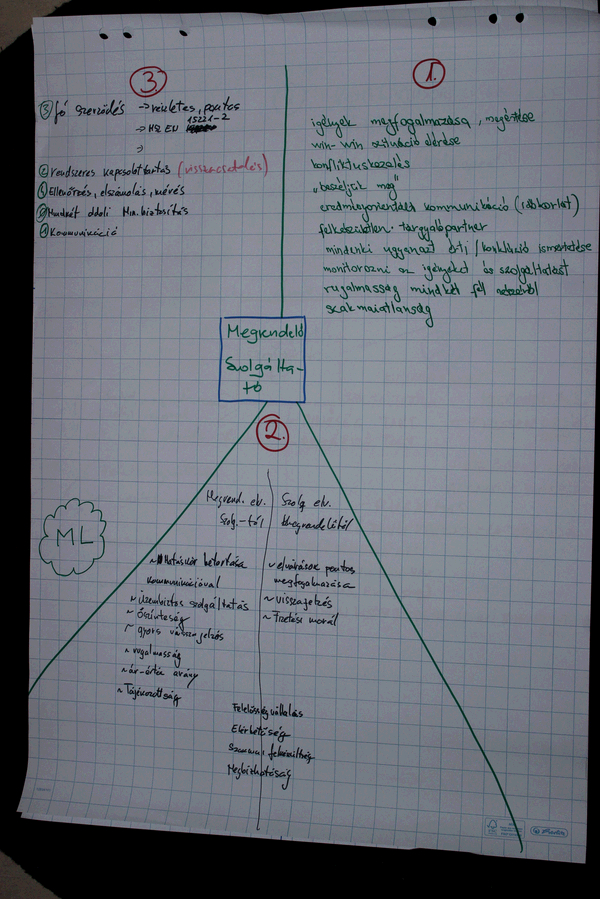 1.
igények megfogalmazása, megértése
win-win szituáció elérése
konfliktuskezelés
"beszéljük meg"
eredményorientált kommunikáció (időkorlát)
felkészületlen tárgyalópartner
mindenki ugyanazt érti / konklúzió ismertetése
monitorozni az igényeket és szolgáltatást
rugalmasság mindkét fél részéről
szakmaiatlanság
Megrendelő
Szolgálta-
tó
2.
Megrend. elv.
Szolg.-tól
~ Hatáskör betartása
kommunikációval
~ Üzembiztos szolgáltatás
~ Őszinteség
~ gyors visszajelzés
~ rugalmasság
~ ár-érték arány
~ Tájékozottság
Szolg. elv.
Megrendelőtől
~ elvárások pontos
megfogalmazása
~ visszajelzés
~ Fizetési morál
Felelősségvállalás
Elérhetőség
Szakmai felkészültség
Megbízhatóság
3.
③ fő szerződés → részletes, pontos
→ MSZ EN 15221-2
→
② rendszeres kapcsolattartás (visszacsatolás)
Ellenőrzés, elszámolás, mérés
Munkát oldali Min. biztosítás
① Kommunikáció
ML
FSC
Herlitz